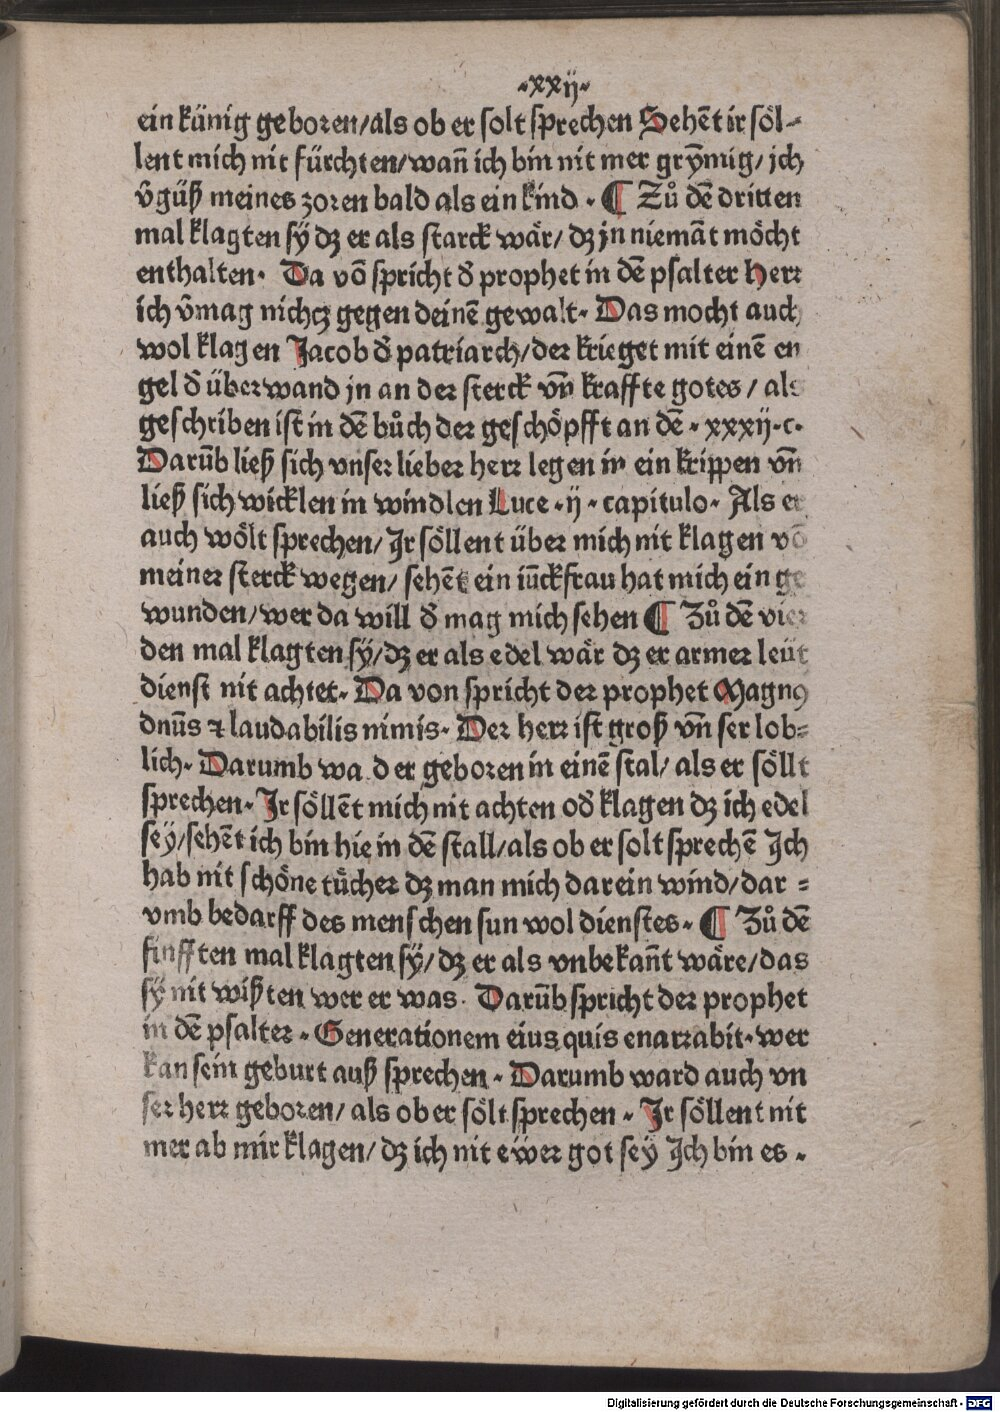 ·xxij·
ein künig geboren/als ob er solt sprechen Sehēt ir söl-
lent mich nit fürchten/wañ ich bin nit mer grȳmig/ jch
v̄güß meines zoren bald als ein kind · ¶ Zů dē dritten
mal klagten sÿ dz er als starck wär/ dz jn niemāt möcht
enthalten· Da vō spricht d̄ prophet in dē psalter herr
ich v̄mag nichcz gegen deinē gewalt· Das mocht auch
wol klagen Jacob d̄ patriarch/der krieget mit einē en
gel d̄ überwand jn an der sterck vn̄ kraffte gotes/ als
geschriben ist in dē bůch der geschöpfft an dē · xxxij·c·
Darūb ließ sich vnser lieber herr legen in ein krippen vn̄
ließ sich wicklen in windlen Luce ·ij· capitulo· Als er
auch wölt sprechen/ Jr söllent über mich nit klagen vō
meiner sterck wegen/ sehēt ein iūckfrau hat mich ein ge
wunden/wer da will d̄ mag mich sehen ¶ Zů dē vier
den mal klagten sÿ/dz er als edel wär dz er armer leüt
dienst nit achtet· Da von spricht der prophet Magnꝰ
dnūs ⁊ laudabilis nimis· Der herr ist groß vn̄ ser lob⸗
lich· Darumb wa d er geboren in einē stal/ als er söllt
sprechen· Jr söllēt mich nit achten od̄ klagen dz ich edel
seÿ/sehēt ich bin hie in dē stall/als ob er solt sprechē Jch
hab nit schöne tücher dz man mich darein wind/dar ⸗
vmb bedarff des menschen sun wol dienstes· ¶ Zů dē
finfften mal klagten sÿ/ dz er als vnbekañt wäre/das
sÿ nit wißten wer er was· Darūb spricht der prophet
in dē psalter · Generationem eius quis enarrabit·wer
kan sein geburt auß sprechen · Darumb ward auch vn
ser herr geboren/ als ob er sölt sprechen · Jr söllent nit
mer ab mir klagen/ dz ich nit ëwer got seÿ Jch bin es ·
Digitalisierung gefördert durch die Deutsche Forschungsgemeinschaft - DFG